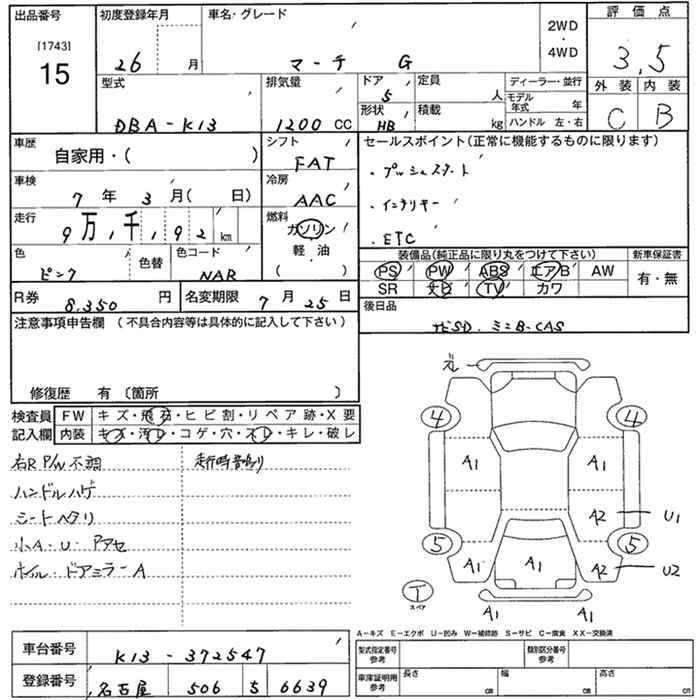 出品番号
[1743]
15
初度登録年月
26 月
車名・グレード
マーチ G
2WD
・
4WD
評価点
3.5
外装 内装
C B
型式
DBA-K13
排気量
1200 CC
ドア
5
形状
HB
定員
人
積載
kg
ディーラー・並行
モデル年式 年
ハンドル 左・右
車歴
自家用・( )
シフト
FAT
車検
7年 3月( 日)
冷房
AAC
走行
9万,千,92 km
燃料
ガソリン
軽・油
( )
色
ピンク
色替
色コード
NAR
セールスポイント(正常に機能するものに限ります)
・プッシュスタート
・インテリキー
・ETC
装備品(純正品に限り丸をつけて下さい)
新車保証書
PS PW ABS エアB AW
SR ナビ TV カワ
有・無
R券 8,350 円
名変期限 7月25日
後日品
ナビSD. ミニB-CAS
注意事項申告欄 (不具合内容等は具体的に記入して下さい)
修復歴 有 〔箇所 〕
検査員
記入欄
FW キズ・飛石・ヒビ割・リペア跡・X要
内装 キズ・汚レ・コゲ・穴・スレ・キレ・破レ
右R P/W不調
走行時音鳴り
ハンドルハゲ
シートヘタリ
小A・U・Pアセ
ホイル・ドアミラーA
4 4
A1
A2 U1
5 5
A1 A1 A2 U2
T
スペア
A1 A1
A-キズ E-エクボ U-凹み W-補修跡 S-サビ C-腐食 XX-交換済
車台番号
K13-372547
登録番号
名古屋 506 ち 6639
型式指定番号
参考
類別区分番号
参考
車庫証明用
参考
長さ cm
幅 cm
高さ cm